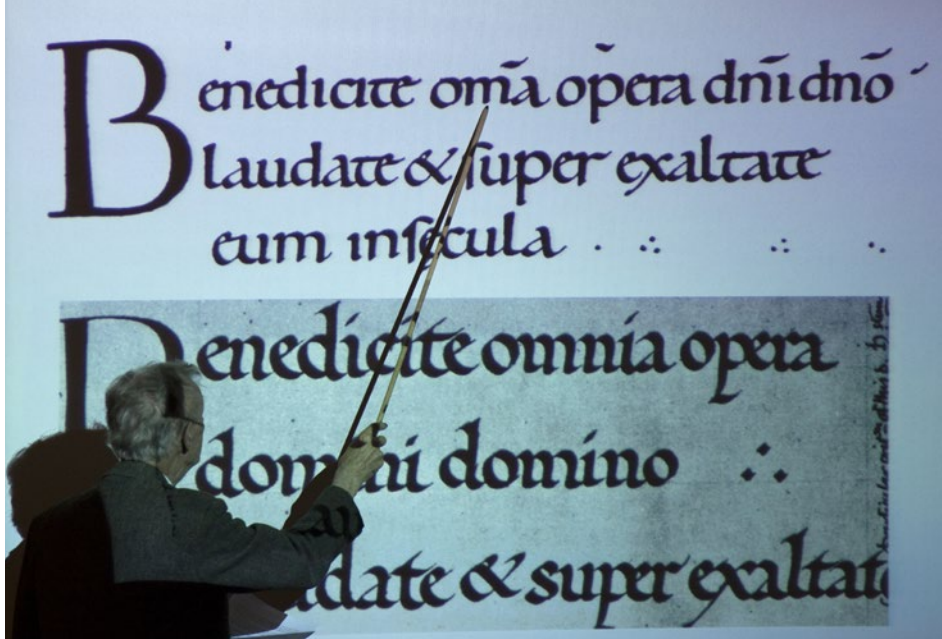 Benedicite om̄a op̄era dn̄i dn̄o
laudate & ſuper exaltate
eum inſęcula . .·. .·. ·.
Benedicite omnia opera
domini domino .·.
laudate & super exaltate